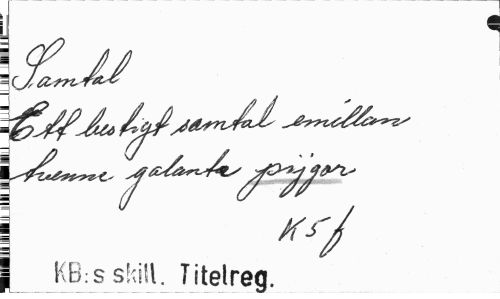 Samtal
Ett lustigt samtal emillan
tvenne galanta pijgor
K 5 f
KB:s skill. Titelreg.